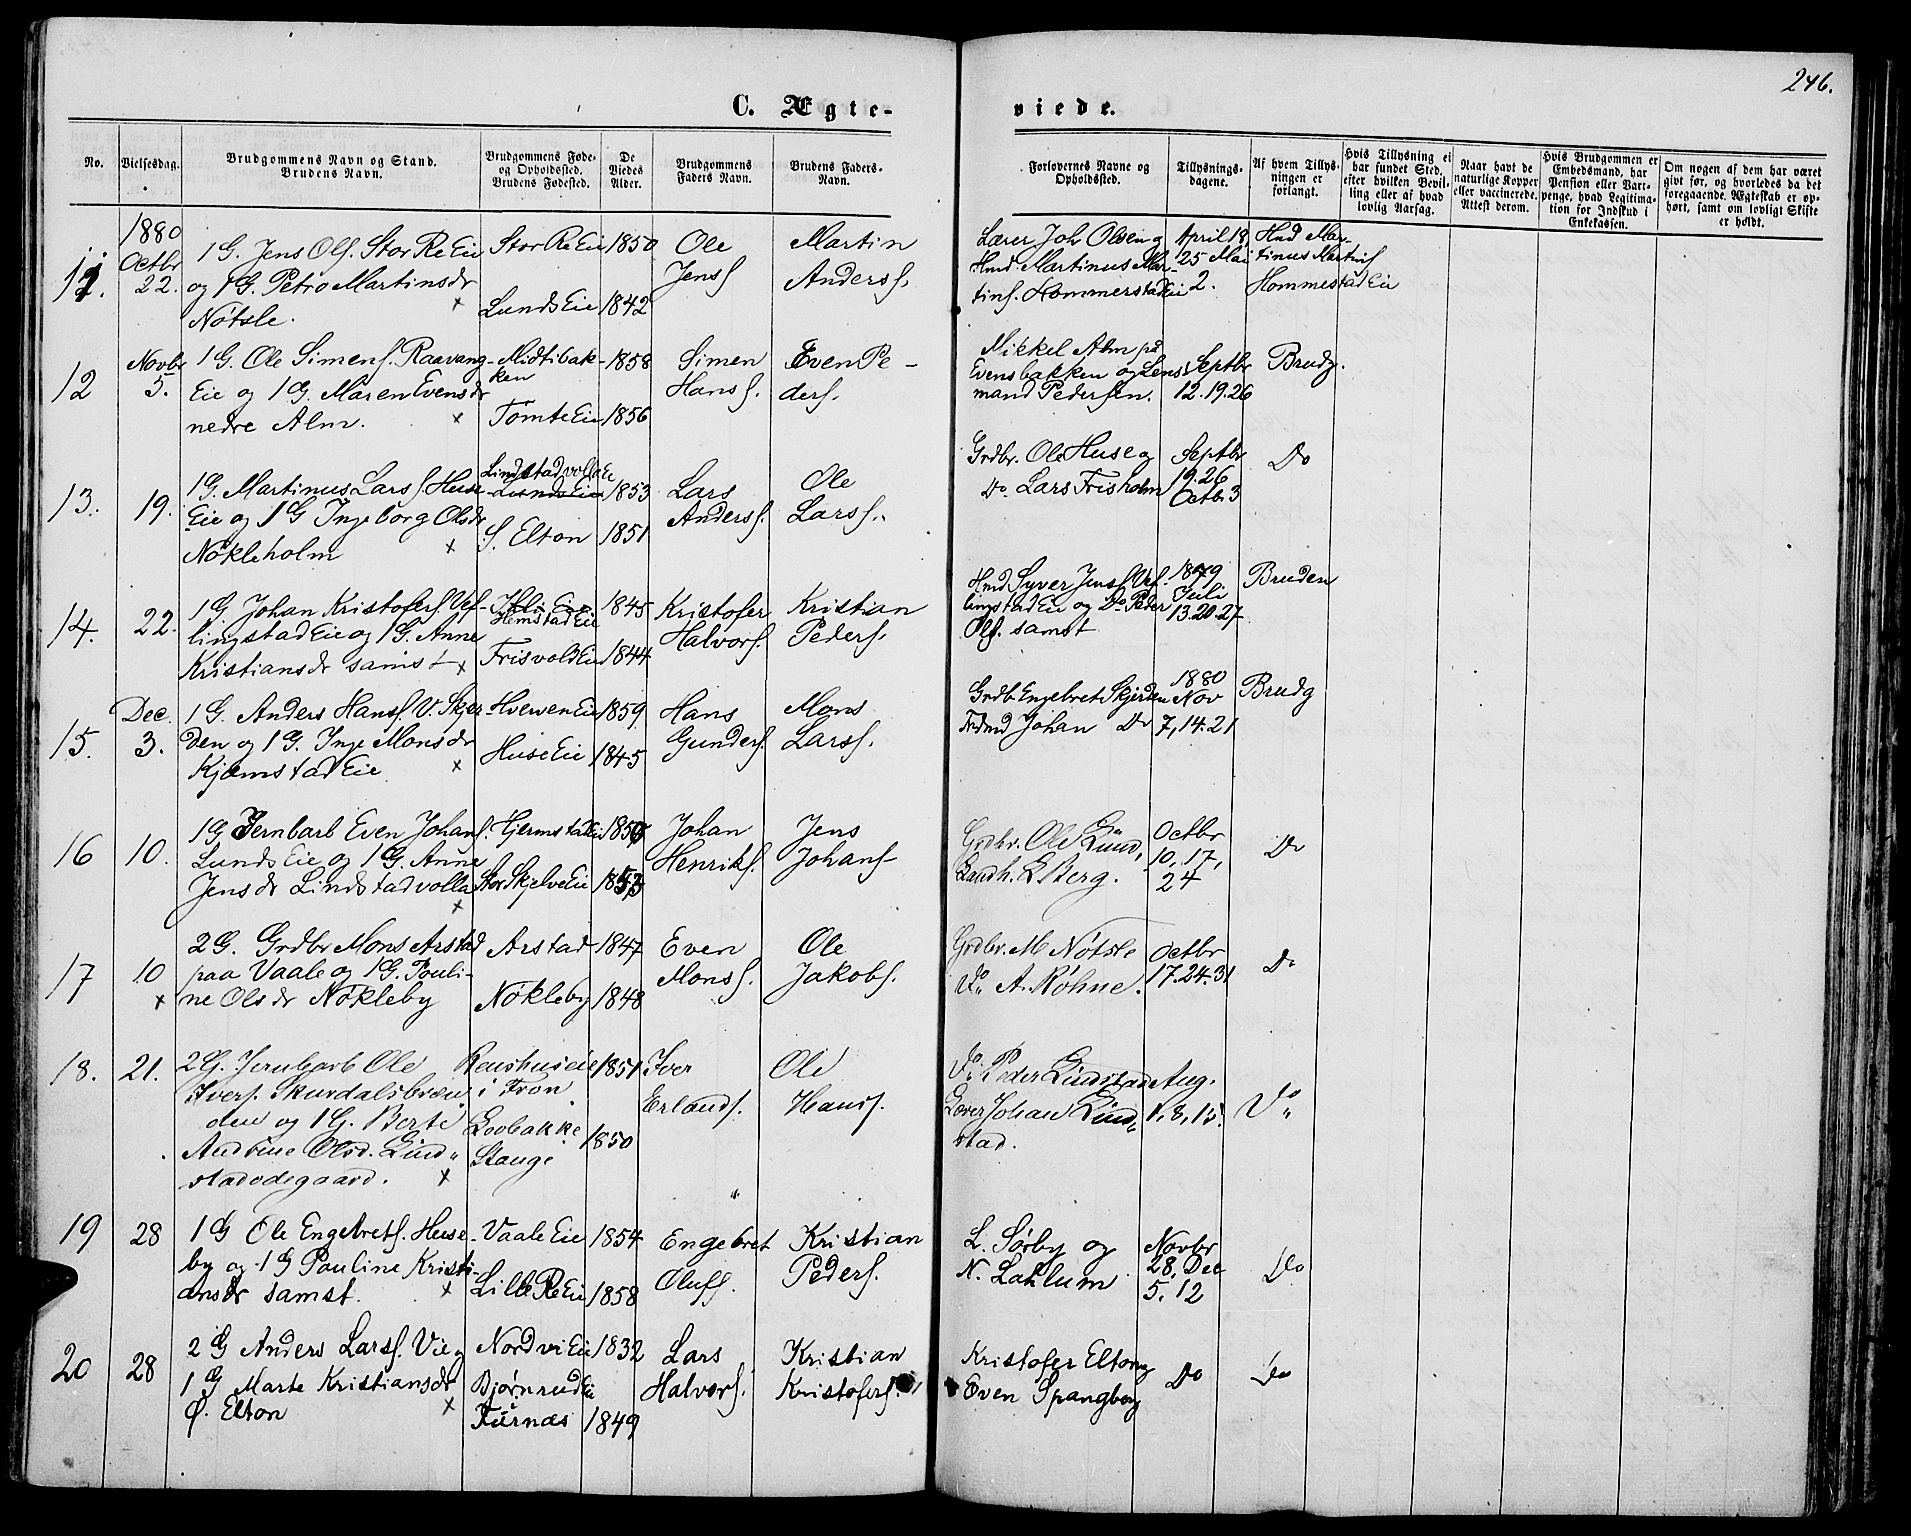 246.
C. Ægte-
viede.
No.
Vielsesdag.
Brudgommens Navn og Stand.
Brudens Navn.
Brudgommens Føde-
og Opholdsted.
Brudens Fødested.
De
Viedes
Alder.
Brudgommens
Faders Navn.
Brudens Faders-
Navn.
Forlovernes Navne og
Opholdssted.
Tillysnings-
dagene.
Af hvem Tillys-
ningen er
forlangt.
Hvis Tillysning ei
har fundet Sted,
efter hvilken Bevil-
ling eller af hvad
lovlig Aarsag.
Naar havt de
naturlige Kopper
eller vaccinerede.
Attest derom.
Hvis Brudgommen er
Embedsmand, har
Pension eller Vart-
penge, hvad Legitima-
tion for Indskud i
Enkekassen.
Om nogen af dem har været
givt før, og hvorledes da det
foregaaende Ægteskab er op-
hørt, samt om lovligt Skifte
er holdt.
11.
1880
Octbr
22.
1 G. Jens Ols. Stor Re Eie
og 1 G. Petro Martinsdr
Nötsle. x
Stor Re Eie
Lunds Eie
1850
1842
Ole
Jens.
Martin
Anders.
Lærer Joh Olsen og
Hmd. Martinus Mar-
tins. Hommerstad Eie
April 18
25 Mai
2.
Hmd Mar-
tinus Martins
Hommestad Eie
12
Novbr
5.
1 G. Ole Simens. Raavang-
Eie og 1 G. Maren Evensdr
nedre Alm. x
Midtibak-
ken
Tomte Eie
1858
1856
Simen
Hans.
Even Pe-
ders.
Mikkel Alm på
Evensbakken og Lens
mand Pedersen.
Septbr
12.19.26
Brudg.
13.
19.
1 G. Martinus Lars. Huse
Eie og 1 G Ingeborg Olsdr
Nökleholm x
Lindstadvolla Eie
Lunds Eie
S. Elton
1853
1851
Lars
Anders.
Ole
Lars.
Grdbr. Ole Huse og
Do. Lars Frisholm
Septbr
19.26
Octb. 3
Do
14.
22.
1 G. Johan Kristofers. Vef-
lingstad Eie og 1 G. Anne
Kristiansdr samst x
Hemstad Eie
Frisvold Eie
1845
1844
Kristofer
Halvors.
Kristian
Peders.
Hmd Syver Jens. Vef-
lingstad Eie og Do Peder
Ols. samst
1879
Juli
13.20.27.
Bruden
15.
Dec.
3.
1 G. Anders Hans. V. Skjer-
den og 1 G. Inge Monsdr
Kjæmstad Eie x
Hverven Eie
Huse Eie
1859
1845
Hans
Gunders.
Mons
Lars.
Grdb. Engebret Skjerden
Johan Do
1880
Nov
7, 14. 21
Brudg
16
10.
1 G Jernbarb Even Johans.
Lunds Eie og 1 G. Anne
Jensdr Lindstadvolla x
Hjermstad Eie
Stor Skjelve Eie
1850
1853
Johan
Henriks.
Jens
Johans-
Grdbr. Ole Lund,
Landh. L. Berg.
Octbr
10, 17,
24
Do
17
10
x
2 G. Grdbr Mons Arstad
paa Vaale og 1 G. Pouli-
ne Olsdr Nökleby
Arstad
Nökleby
1847
1848
Even
Mons.
Ole
Jakobs.
Grdbr. M Nötsle
Do A. Röhne.
Octbr
17.24.31
Do
18.
21.
2 G. Jernbarb Ole
Ivers. Skurdalsbraaen
og 1 G. Berte
Andrine Olsd. Lind-
stadødegaard. x
i Fron
Lovbakke
Stange
1851
1850
Iver
Erlands.
Ole
Hans.
Do Peder Lindstad
Lærer Johan Lind-
stad.
Aug.
1, 8, 15.
Do
19
28
1 G Ole Engebrets. Huse-
by og 1 G Pauline Kristi-
ansdr samst. x
Vaale Eie
Lille Re Eie
1854
1858
Engebret
Olufs.
Kristian
Peders.
L. Sørby og
N. Lahlum
Novbr
28, Dec
5. 12
Do
20
28
2 G Anders Lars. Vie og
1 G Marte Kristiansdr
Ø. Elton x
Nordvi Eie
Bjørnrud Eie
Furnæs
1832
1849
Lars
Halvors.
Kristian
Kristofers.
Kristofer Elton og
Even Spangberg
Do
Do